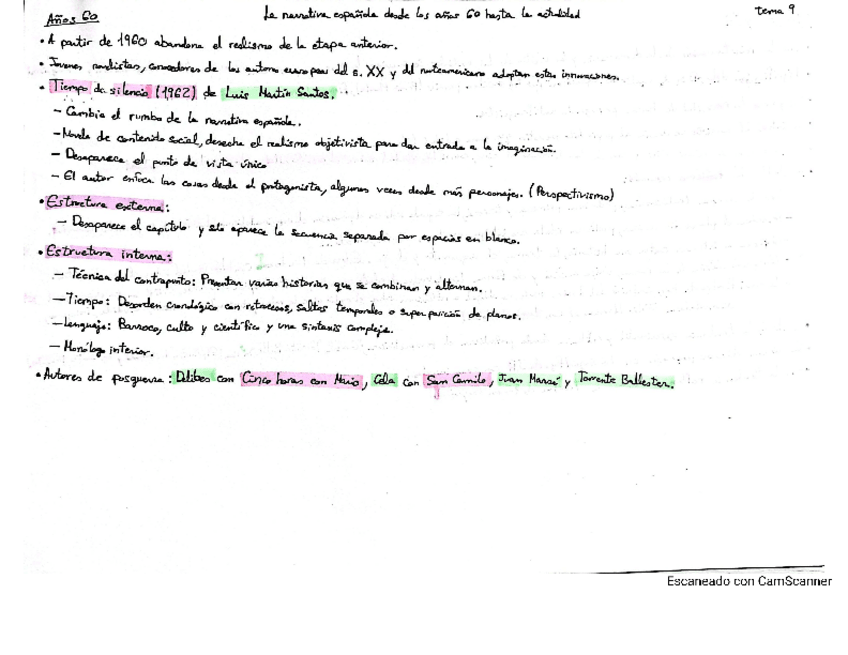 La narrativa española desde los años 60 hasta la actualidad
tema 9
Años 60
• A partir de 1960 abandona el realismo de la etapa anterior.
• Jóvenes novelistas, conocedores de los autores europeos del s. XX y del norteamericano adoptan estas innovaciones.
• Tiempo de silencio (1962) de Luis Martín Santos.
- Cambia el rumbo de la narrativa española.
- Novela de contenido social, desecha el realismo objetivista para dar entrada a la imaginación.
- Desaparece el punto de vista único
- El autor enfoca las cosas desde el protagonista, algunas veces desde más personajes. (Perspectivismo)
• Estructura externa:
- Desaparece el capítulo y sólo aparece la secuencia separada por espacios en blanco.
• Estructura interna:
- Técnica del contrapunto: Presentar varias historias que se combinan y alternan.
- Tiempo: Desorden cronológico con retrocesos, saltos temporales o superposición de planos.
- Lenguaje: Barroco, culto y científico y una sintaxis compleja.
- Monólogo interior.
• Autores de posguerra: Delibes con Cinco horas con Mario, Cela con San Camilo, Juan Marsé y Torrente Ballester.
Escaneado con CamScanner